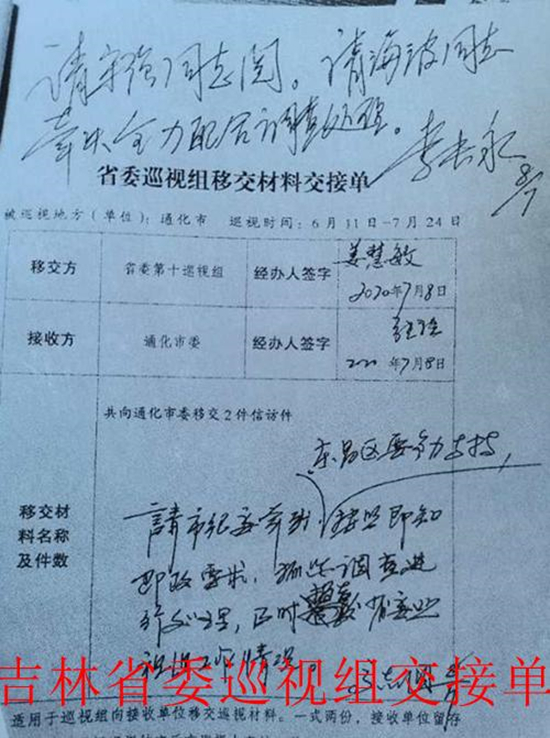 请宋强同志阅。请海波同志
牵头全力配合调查处理。
李长永
8/7
省委巡视组移交材料交接单
被巡视地方(单位):通化市 巡视时间:6月11日-7月24日
移交方 省委第十巡视组 经办人签字 姜慧敏
2020年7月8日
接收方 通化市委 经办人签字
2020年7月8日
共向通化市委移交2件信访件
东昌区要全力支持,
移交材
料名称
及件数
請市纪委牵头,按照即知
即改要求,抓紧调查进
行处理,及时
视组工作情况。
吉林省委巡视组交接单
适用于巡视组向接收单位移交巡视材料。一式两份,接收单位留存